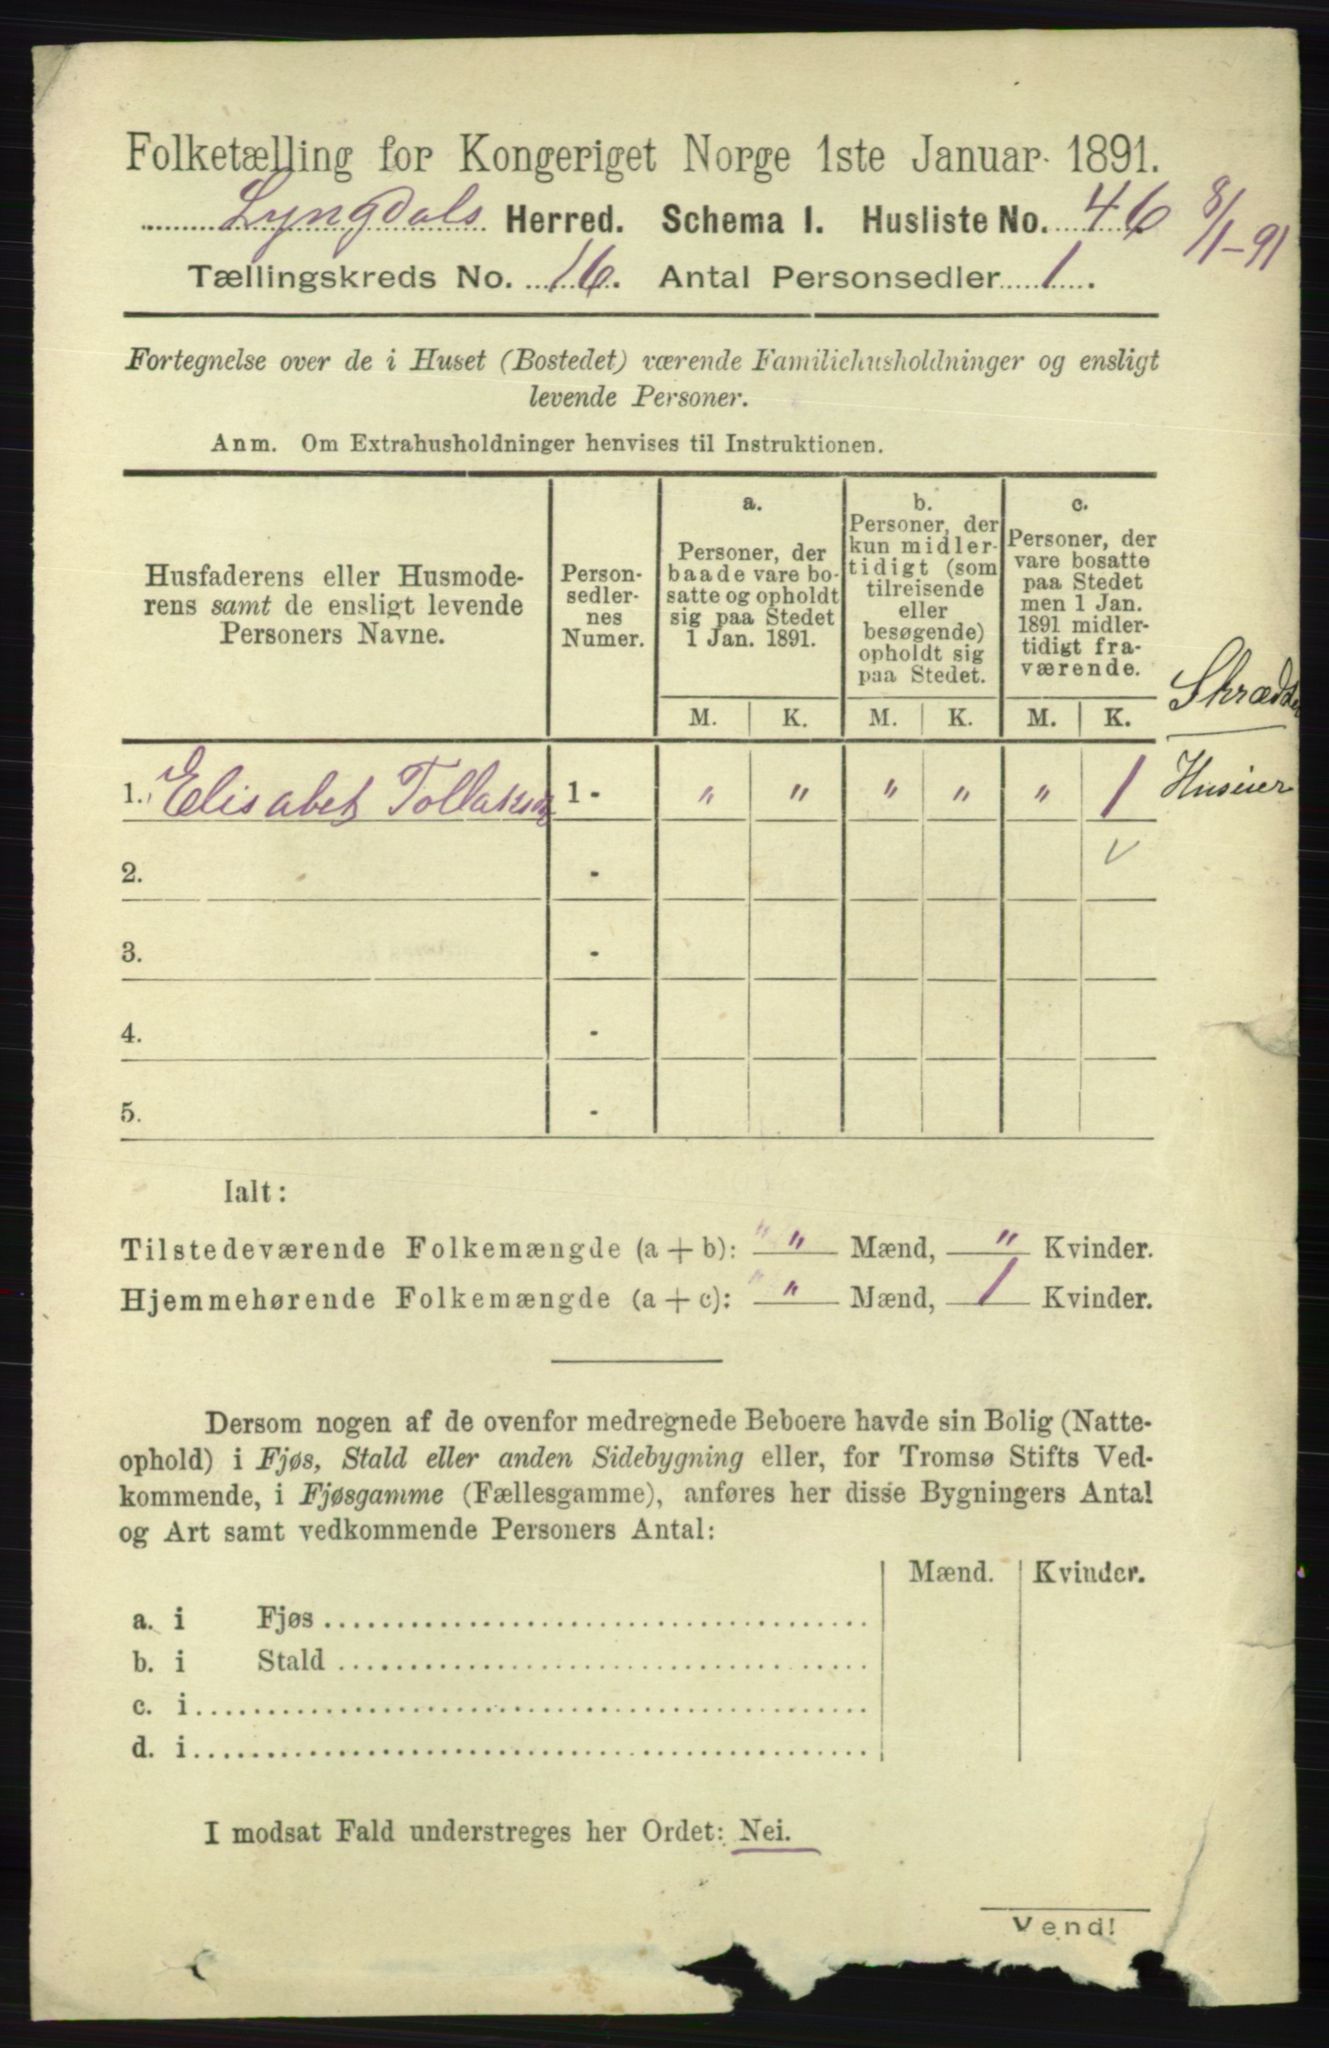 Folketælling for Kongeriget Norge 1ste Januar 1891.
Lyngdals Herred. Schema I. Husliste No. 46 8/1-91
Tællingskreds No. 16. Antal Personsedler 1.
Fortegnelse over de i Huset (Bostedet) værende Familiehusholdninger og ensligt
levende Personer.
Anm. Om Extrahusholdninger henvises til Instruktionen.
Husfaderens eller Husmode-
rens samt de ensligt levende
Personers Navne.
Person-
sedler-
nes
Numer.
a.
Personer, der
baade vare bo-
satte og opholdt
sig paa Stedet
1 Jan. 1891.
b.
Personer, der
kun midler-
tidigt (som
tilreisende
eller
besøgende)
opholdt sig
paa Stedet.
c.
Personer, der
vare bosatte
paa Stedet
men 1 Jan.
1891 midler-
tidigt fra-
værende.
M. K. M. K. M. K.
Skrædder
1. Elisabet 1 - " " " " " 1 Huseier
2. -
3. -
4. -
5. -
Ialt:
Tilstedeværende Folkemængde (a + b): " " Mænd, " Kvinder.
Hjemmehørende Folkemængde (a + c): " " Mænd, 1 Kvinder.
Dersom nogen af de ovenfor medregnede Beboere havde sin Bolig (Natte-
ophold) i Fjøs, Stald eller anden Sidebygning eller, for Tromsø Stifts Ved-
kommende, i Fjøsgamme (Fællesgamme), anføres her disse Bygningers Antal
og Art samt vedkommende Personers Antal:
Mænd. Kvinder.
a. i Fjøs
b. i Stald
c. i
d. i
I modsat Fald understreges her Ordet: Nei.
Vend!